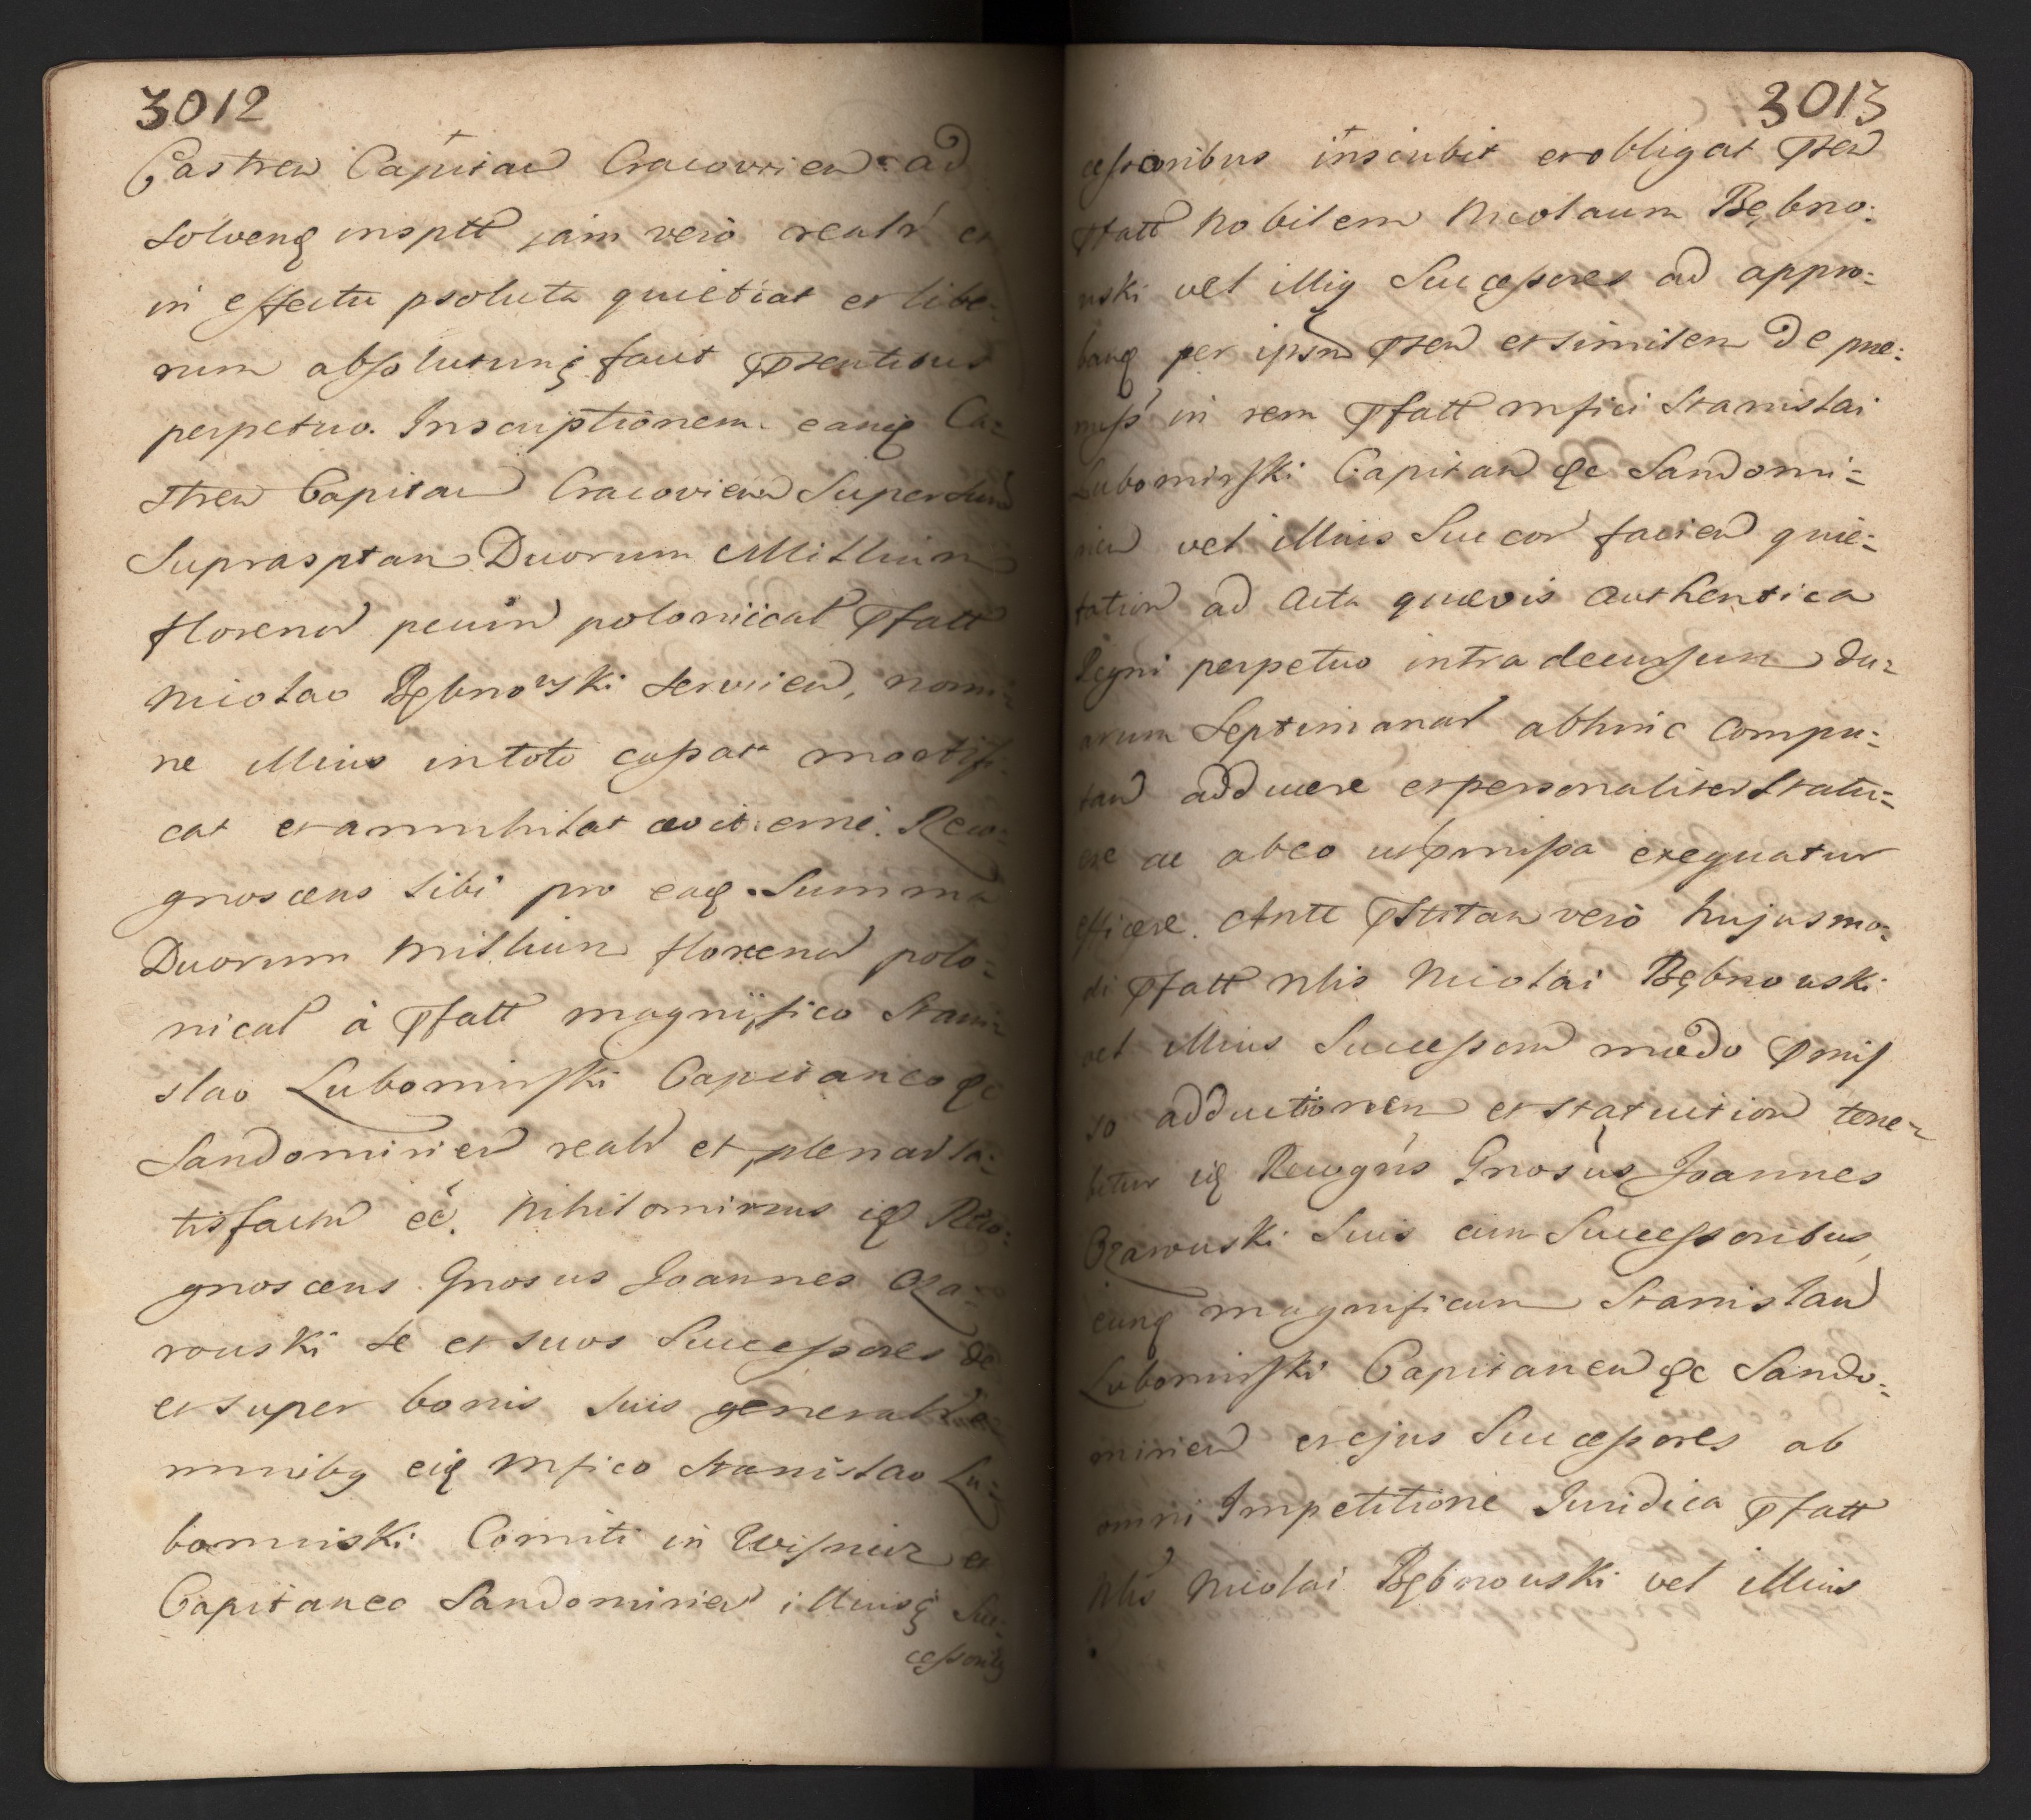 3012
Castren Capitan Cracovien ad
Solvenq insptt jam verò realr et
in effectu psoluta quietiat et libe-
rum absolutumq facit Ptentibus
perpetuo. Inscriptionem eamq Ca-
stren Capitan Cracovien Super Sum
Suprasptam Duorum Millium
floren pecun polonical Pfatt
Nicolao Bębnowski servien, nomi-
ne illius in toto cassat mortifi-
cat et annihilat æviterne. Reco-
gnoscens Sibi pro eaq Summa
Duorum Millium floren polo-
nical à Pfatt magnifico Stani-
slao Lubomirski Capitaneo &c
Sandomirien realr et plenar sa-
tisfactu eě. Nihilominus iq Reco-
gnoscens Gnosus Joannes Oża-
rouski se et suos Successores de
et super bonis suis generalr o
mnibq eiq Mfico Stanislao Lu-
bomirski Comiti in Wisnicz et
Capitaneo Sandomirien illiusq Suc-
cessoribq
3013
cessoribus inscribit et obligat Pten
Pfatt Nobilem Nicolaum Bębno-
uski vel illiq Successores ad appro-
banq per ipsm Pten et similem de præ-
miss in rem Pfatt Mfici Stanislai
Lubomirski Capitan &c Sandomi-
rien vel illius Succor facien quie-
tation ad Acta quævis Authentica
Regni perpetuo intra decursum du-
arum Septimanar abhinc compu-
tan adducere et personaliter Statu-
ere ac ab eo ut pmissa exequatur
efficere. Ante Ptitan verò hujusmo-
di Pfatt Nlis Nicolai Bębnouski
vel illius Successorum modo pmis
so adductionem et statuition tene-
bitur iq Recogns Gnosus Joannes
Ożarouski Suis cum Successoribus
eunq magnificum Stanislaum
Lubomirski Capitaneu &c Sando-
mirien et ejus Successores ab
omni Impetitione Juridica Pfatt
Nlis Nicolai Bębnouski vel illius